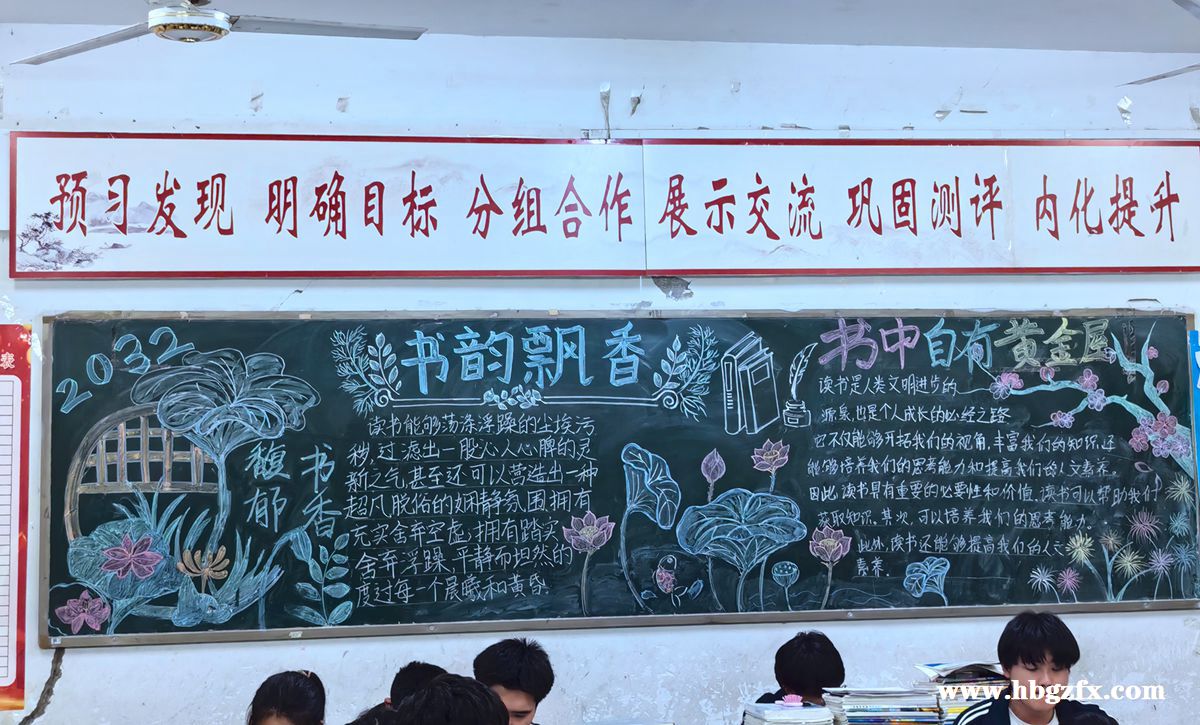 预习发现 明确目标 分组合作 展示交流 巩固测评 内化提升
表
2032
书香
馥郁
书韵飘香
读书能够荡涤浮躁的尘埃污
秽,过滤出一股沁人心脾的灵
新之气,甚至还可以营造出一种
超凡脱俗的娴静氛围,拥有
充实舍弃空虚,拥有踏实
舍弃浮躁、平静而坦然的
度过每一个晨曦和黄昏
书中自有黄金屋
读书是人类文明进步的
源泉,也是个人成长的必经之路
它不仅能够开拓我们的视角,丰富我们的知识,还
能够培养我们的思考能力和提高我们的人文素养。
因此,读书具有重要的必要性和价值,读书可以帮助我们
获取知识。其次,可以培养我们的思考能力。
此外,读书还能够提高我们的人文
素养。
www.hbgzfx.com